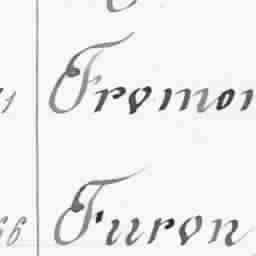 1 Fromon
66 Furon